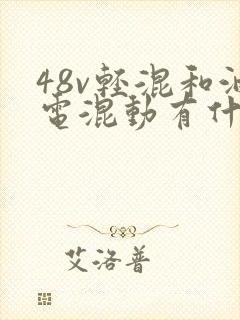 48v輕混和油
電混動有什
艾洛普